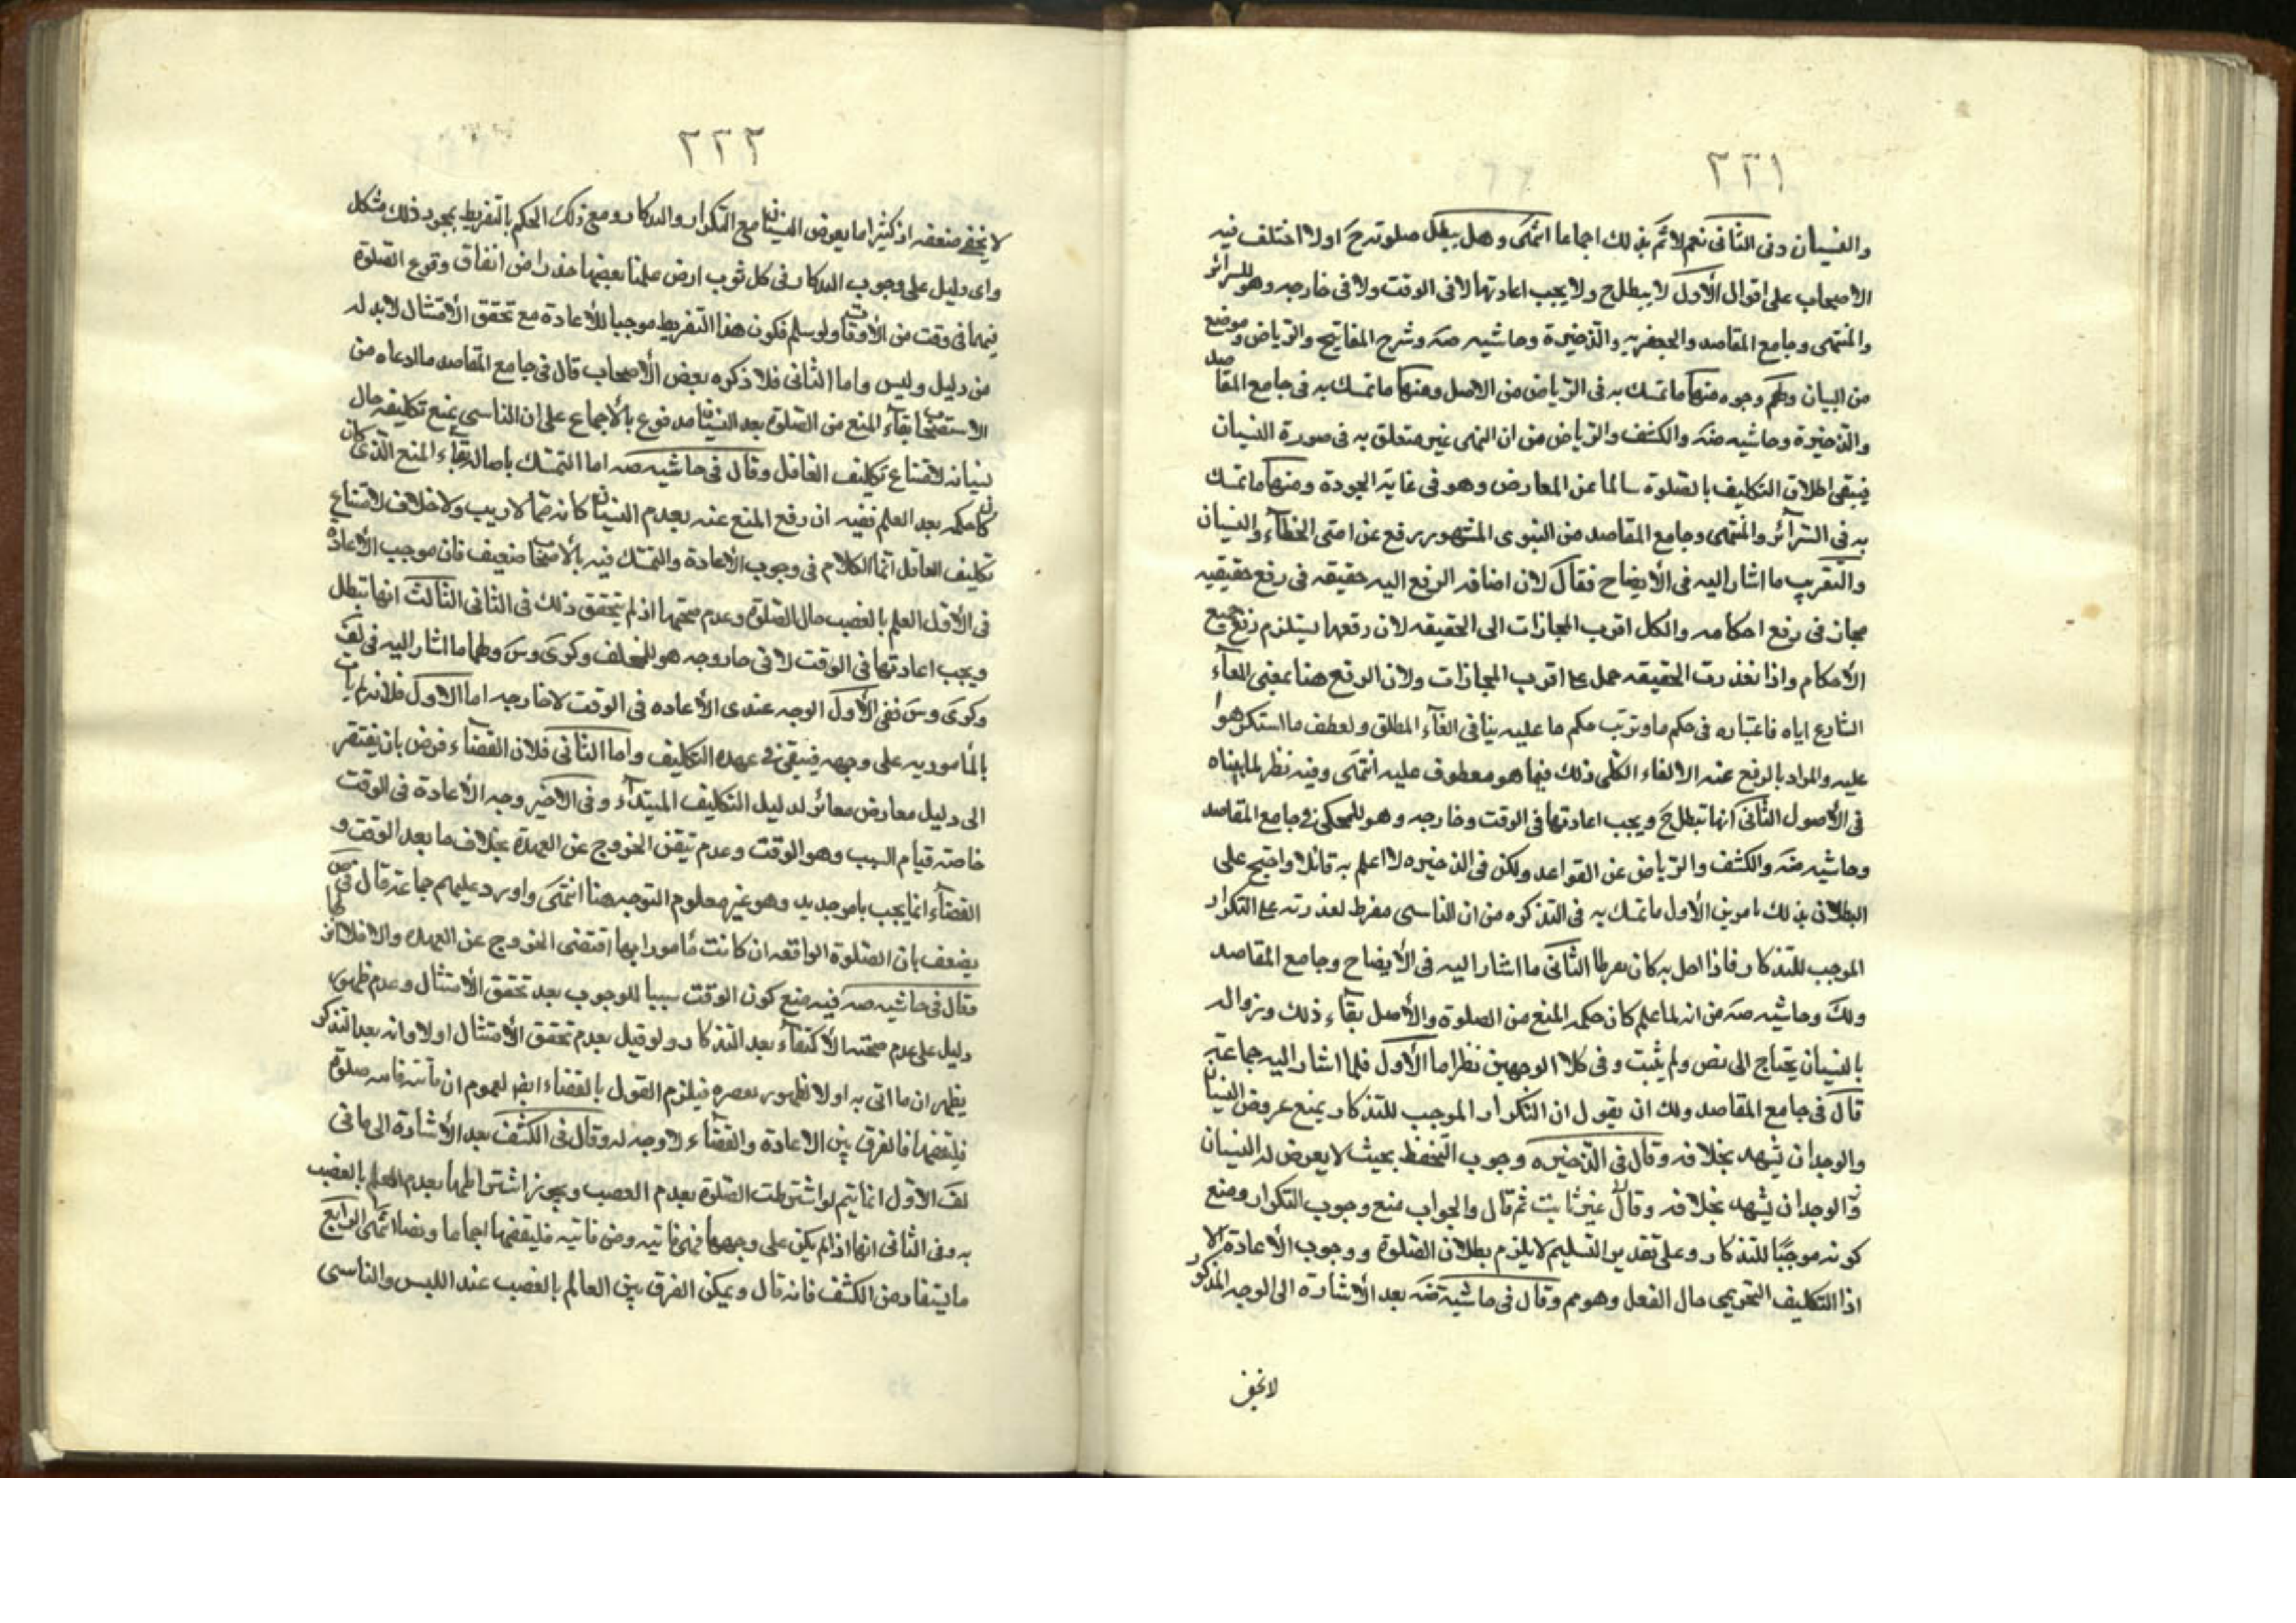 ٢٢١
والنسيان دفى الثانى نعم لا اثم بذلك اجماعا انتهى وهل يبطل صلوته ح اولا اختلف فيه
الاصحاب على اقوال الأول لا يبطل ح ولا يجب اعادتها لا فى الوقت ولا فى خارجه وهو للسرائر
والمنتهى وجامع المقاصد والجعفريه والذخيرة وحاشيه صه وشرح المفاتيح والرياض وموضع
من البيان ولهم وجوه منها ما تمسك به فى الرياض من الاصل ومنها ما تمسك به فى جامع المقاصد
والذخيرة وحاشيه ضه والكشف والرياض من ان النهى غير متعلق به فى صورة النسيان
فيبقى اطلاق التكليف بالصلوة سالما عن المعارض وهو فى غاية الجودة ومنها ما تمسك
به فى السرآئر والمنتهى وجامع المقاصد من النبوى المشهور رفع عن امتى الخطآء والنسيان
والتقريب ما اشار اليه فى الأيضاح فقال لان اضافه الرفع اليه حقيقه فى رفع حقيقيه
مجاز فى رفع احكامه والكل اقرب المجازات الى الحقيقه لان رفعها يستلزم رفع جميع
الأحكام واذا تعذرت الحقيقه حمل على اقرب المجازات ولان الرفع هنا بمعنى الغآء
الشارع اياه فاعتباره فى حكم ما وترتب حكم ما عليه ينافى الغآء المطلق ولعطف ما استكرهوا
عليه والمراد بالرفع عنه الالغاء الكلى ذلك فيما هو معطوف عليه انتهى وفيه نظر لما بيناه
فى الأصول الثانى انها تبطل ح ويجب اعادتها فى الوقت وخارجه وهو للمحكى فى جامع المقاصد
وحاشيه ضه والكشف والرياض عن القواعد ولكن فى الذخيره لا اعلم به قائلا واحتج على
البطلان بذلك بامرين الأول ما تمسك به فى التذكره من ان الناسى مفرط لقدرته على التكرار
الموجب للتذكار فاذا اخل به كان مفرطا الثانى ما اشار اليه فى الأيضاح وجامع المقاصد
ولك وحاشيه صه من انه لما علم كان حكمه المنع من الصلوة والأصل بقآء ذلك وزواله
بالنسيان يحتاج الى نص ولم يثبت وفى كلا الوجهين نظر اما الأول فلما اشار اليه جماعة
قال فى جامع المقاصد ولك ان يقول ان التكرار الموجب للتذكار يمنع عروض النسيان
والوجدان يشهد بخلافه وقال فى الذخيره وجوب التحفظ بحيث لا يعرض له النسيان
والوجدان يشهد بخلافه وقال غير ثابت ثم قال والجواب منع وجوب التكرار ومنع
كونه موجبا للتذكار وعلى تقدير التسليم لا يلزم بطلان الصلوة ووجوب الأعادة الا
اذا التكليف التحريمى حال الفعل وهو مم وقال فى حاشية ضه بعد الأشارة الى الوجه المذكور
لا يخفى
٢٢٢
لا يخفى ضعفه اذ كثيرا ما يعرض النسيان مع التكرار والتذكار ومع ذلك الحكم بالتفريط بمجرد ذلك مشكل
واى دليل على وجوب التذكار فى كل ثوب ارض علمنا بغصبها حذرا من اتفاق وقوع الصلوة
فيها فى وقت من الأوقات ولو سلم فكون هذا التفريط موجبا للأعادة مع تحقق الأمتثال لا بد له
من دليل وليس واما الثانى فلا ذكره بعض الأصحاب قال فى جامع المقاصد ما ادعاه من
الاستصحاب بقآء المنع من الصلوة بعد النسيان مدفوع بالأجماع على ان الناسى يمنع تكليفه حال
نسيانه لامتناع تكليف الغافل وقال فى حاشيه صه اما التمسك باصالة بقاء المنع الذى كان
كان حكمه بعد العلم ففيه ان رفع المنع عنه بعدم النسيان كانه مما لا ريب ولا خلاف لامتناع
تكليف الغافل انما الكلام فى وجوب الأعادة والتمسك فيه بالأصحاب ضعيف فان موجب الأعادة
فى الأول العلم بالغصب حال الصلوة وعدم صحتها اذ لم يتحقق ذلك فى الثانى الثالث انها تبطل
ويجب اعادتها فى الوقت لا فى خارجه هو للمختلف وكرى وس ولهما ما اشار اليه فى لف
وكرى وس ففى الأول الوجه عندى الأعاده فى الوقت لا خارجه اما الاول فلانه لم يات
بالمأمور به على وجهه فيبقى فى عهده التكليف واما الثانى فلان القضآء فرض بان يفتقر
الى دليل معارض مغائر لدليل التكليف المبتدآء وفى الاخير وجه الأعادة فى الوقت
خاصه قيام السبب وهو الوقت وعدم تيقن الخروج عن العهدة بخلاف ما بعد الوقت و
القضآء انما يجب بامر جديد وهو غير معلوم التوجه هنا انتهى واورد عليهم جماعة قال فى ض
يضعف بان الصلوة الواقعه ان كانت مأمورا بها اقتضى الخروج عن العهده والا فلا
فقال فى حاشيه صه فيه منع كون الوقت سببا للوجوب بعد تحقق الأمتثال وعدم ظهور
دليل على عدم صحته الأكتفآء بعد التذكار ولو قيل بعدم تحقق الأمتثال اولا وانه بعد التذكر
يظهر ان ما اتى به اولا فيلزم القول بالقضاء ايض لعموم ان من فاته صلوة
فليقضها فالفرق بين الاعادة والقضآء لا وجه له وقال فى الكشف بعد الأشارة الى ما فى
لف الاول انما يتم لو اشترطت الصلوة بعدم الغصب ويجوز اشتراطها بعدم العلم بالغصب
به وفى الثانى انها اذا لم يكن على وجهها فهى فائتيه ومن فاتته فليقضها اجماعا ونصا انتهى الرابع
ما يستفاد من الكشف فانه قال ويمكن الفرق بين العالم بالغصب عند اللبس والناسى